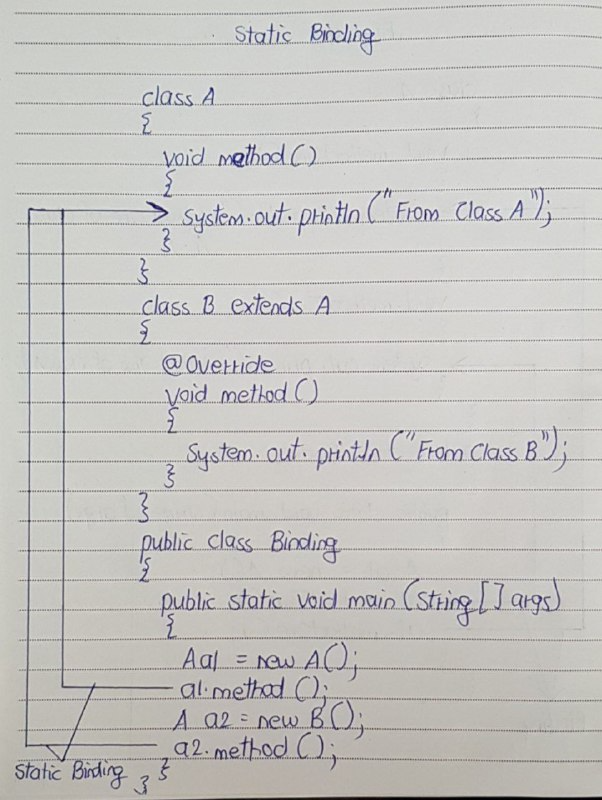 Static Binding
class A
{
void method()
{
System.out.println("From Class A");
}
}
class B extends A
{
@Override
void method()
{
System.out.println("From Class B");
}
}
public class Binding
{
public static void main(String[] args)
{
A a1 = new A();
a1.method();
A a2 = new B();
a2.method();
}
Static Binding }